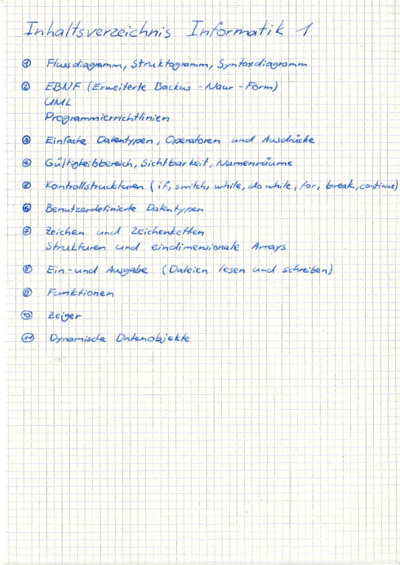 Inhaltsverzeichnis Informatik 1
① Flussdiagramm, Struktogramm, Syntaxdiagramm
② EBNF (Erweiterte Backus-Naur-Form)
UML
Programmierrichtlinien
③ Einfache Datentypen, Operatoren und Ausdrücke
④ Gültigkeitsbereich, Sichtbarkeit, Namenräume
⑤ Kontrollstrukturen (if, switch, while, do while, for, break, continue)
⑥ Benutzerdefinierte Datentypen
⑦ Zeichen und Zeichenketten
Strukturen und eindimensionale Arrays
⑧ Ein- und Ausgabe (Dateien lesen und schreiben)
⑨ Funktionen
⑩ Zeiger
⑪ Dynamische Datenobjekte